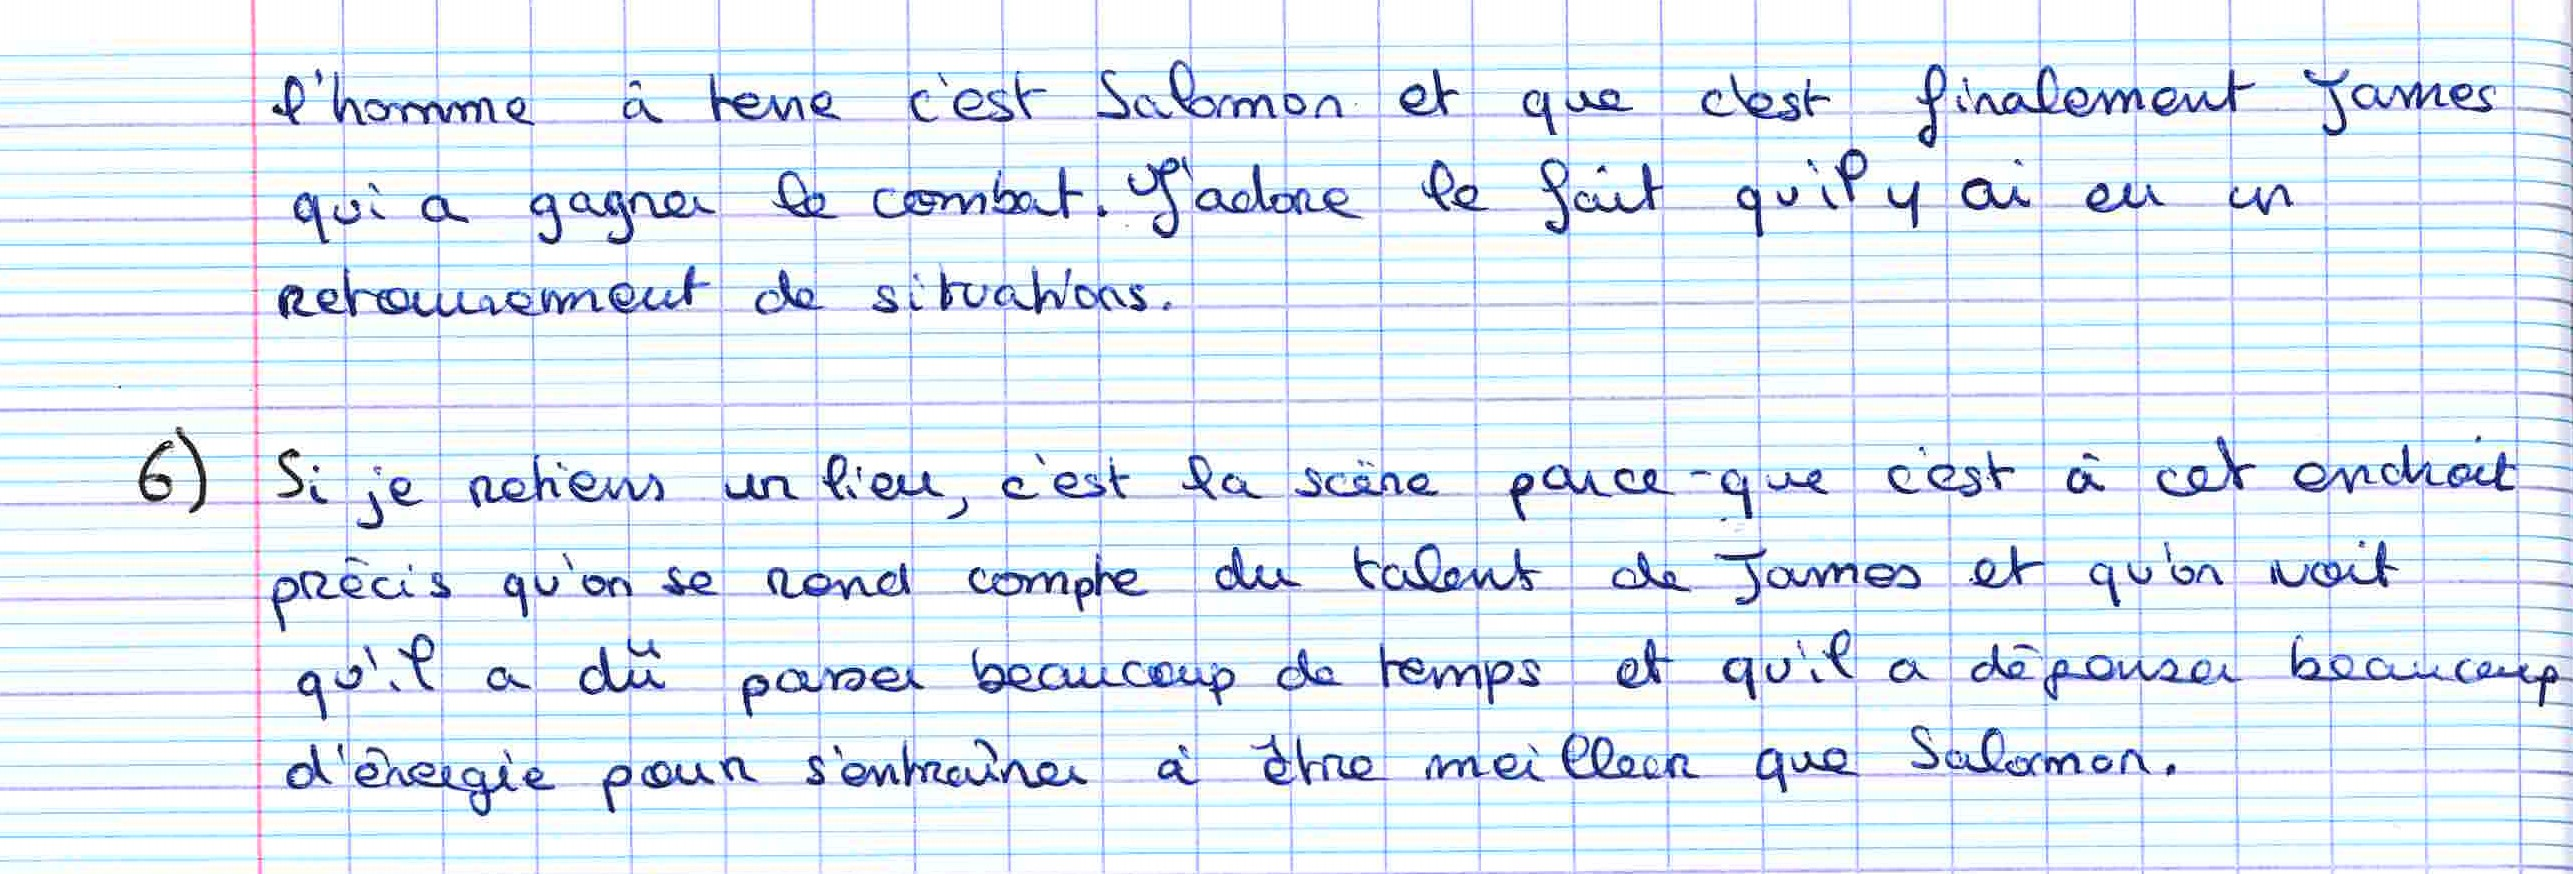 l'homme à terre c'est Salomon et que c'est finalement James
qui a gagner le combat. J'adore le fait qu'il y ai eu un
retournement de situations.
6) Si je retiens un lieu, c'est la scène parce-que c'est à cet endroit
précis qu'on se rend compte du talent de James et qu'on voit
qu'il a dû passer beaucoup de temps et qu'il a dépenser beaucoup
d'énergie pour s'entraîner à être meilleur que Salomon.